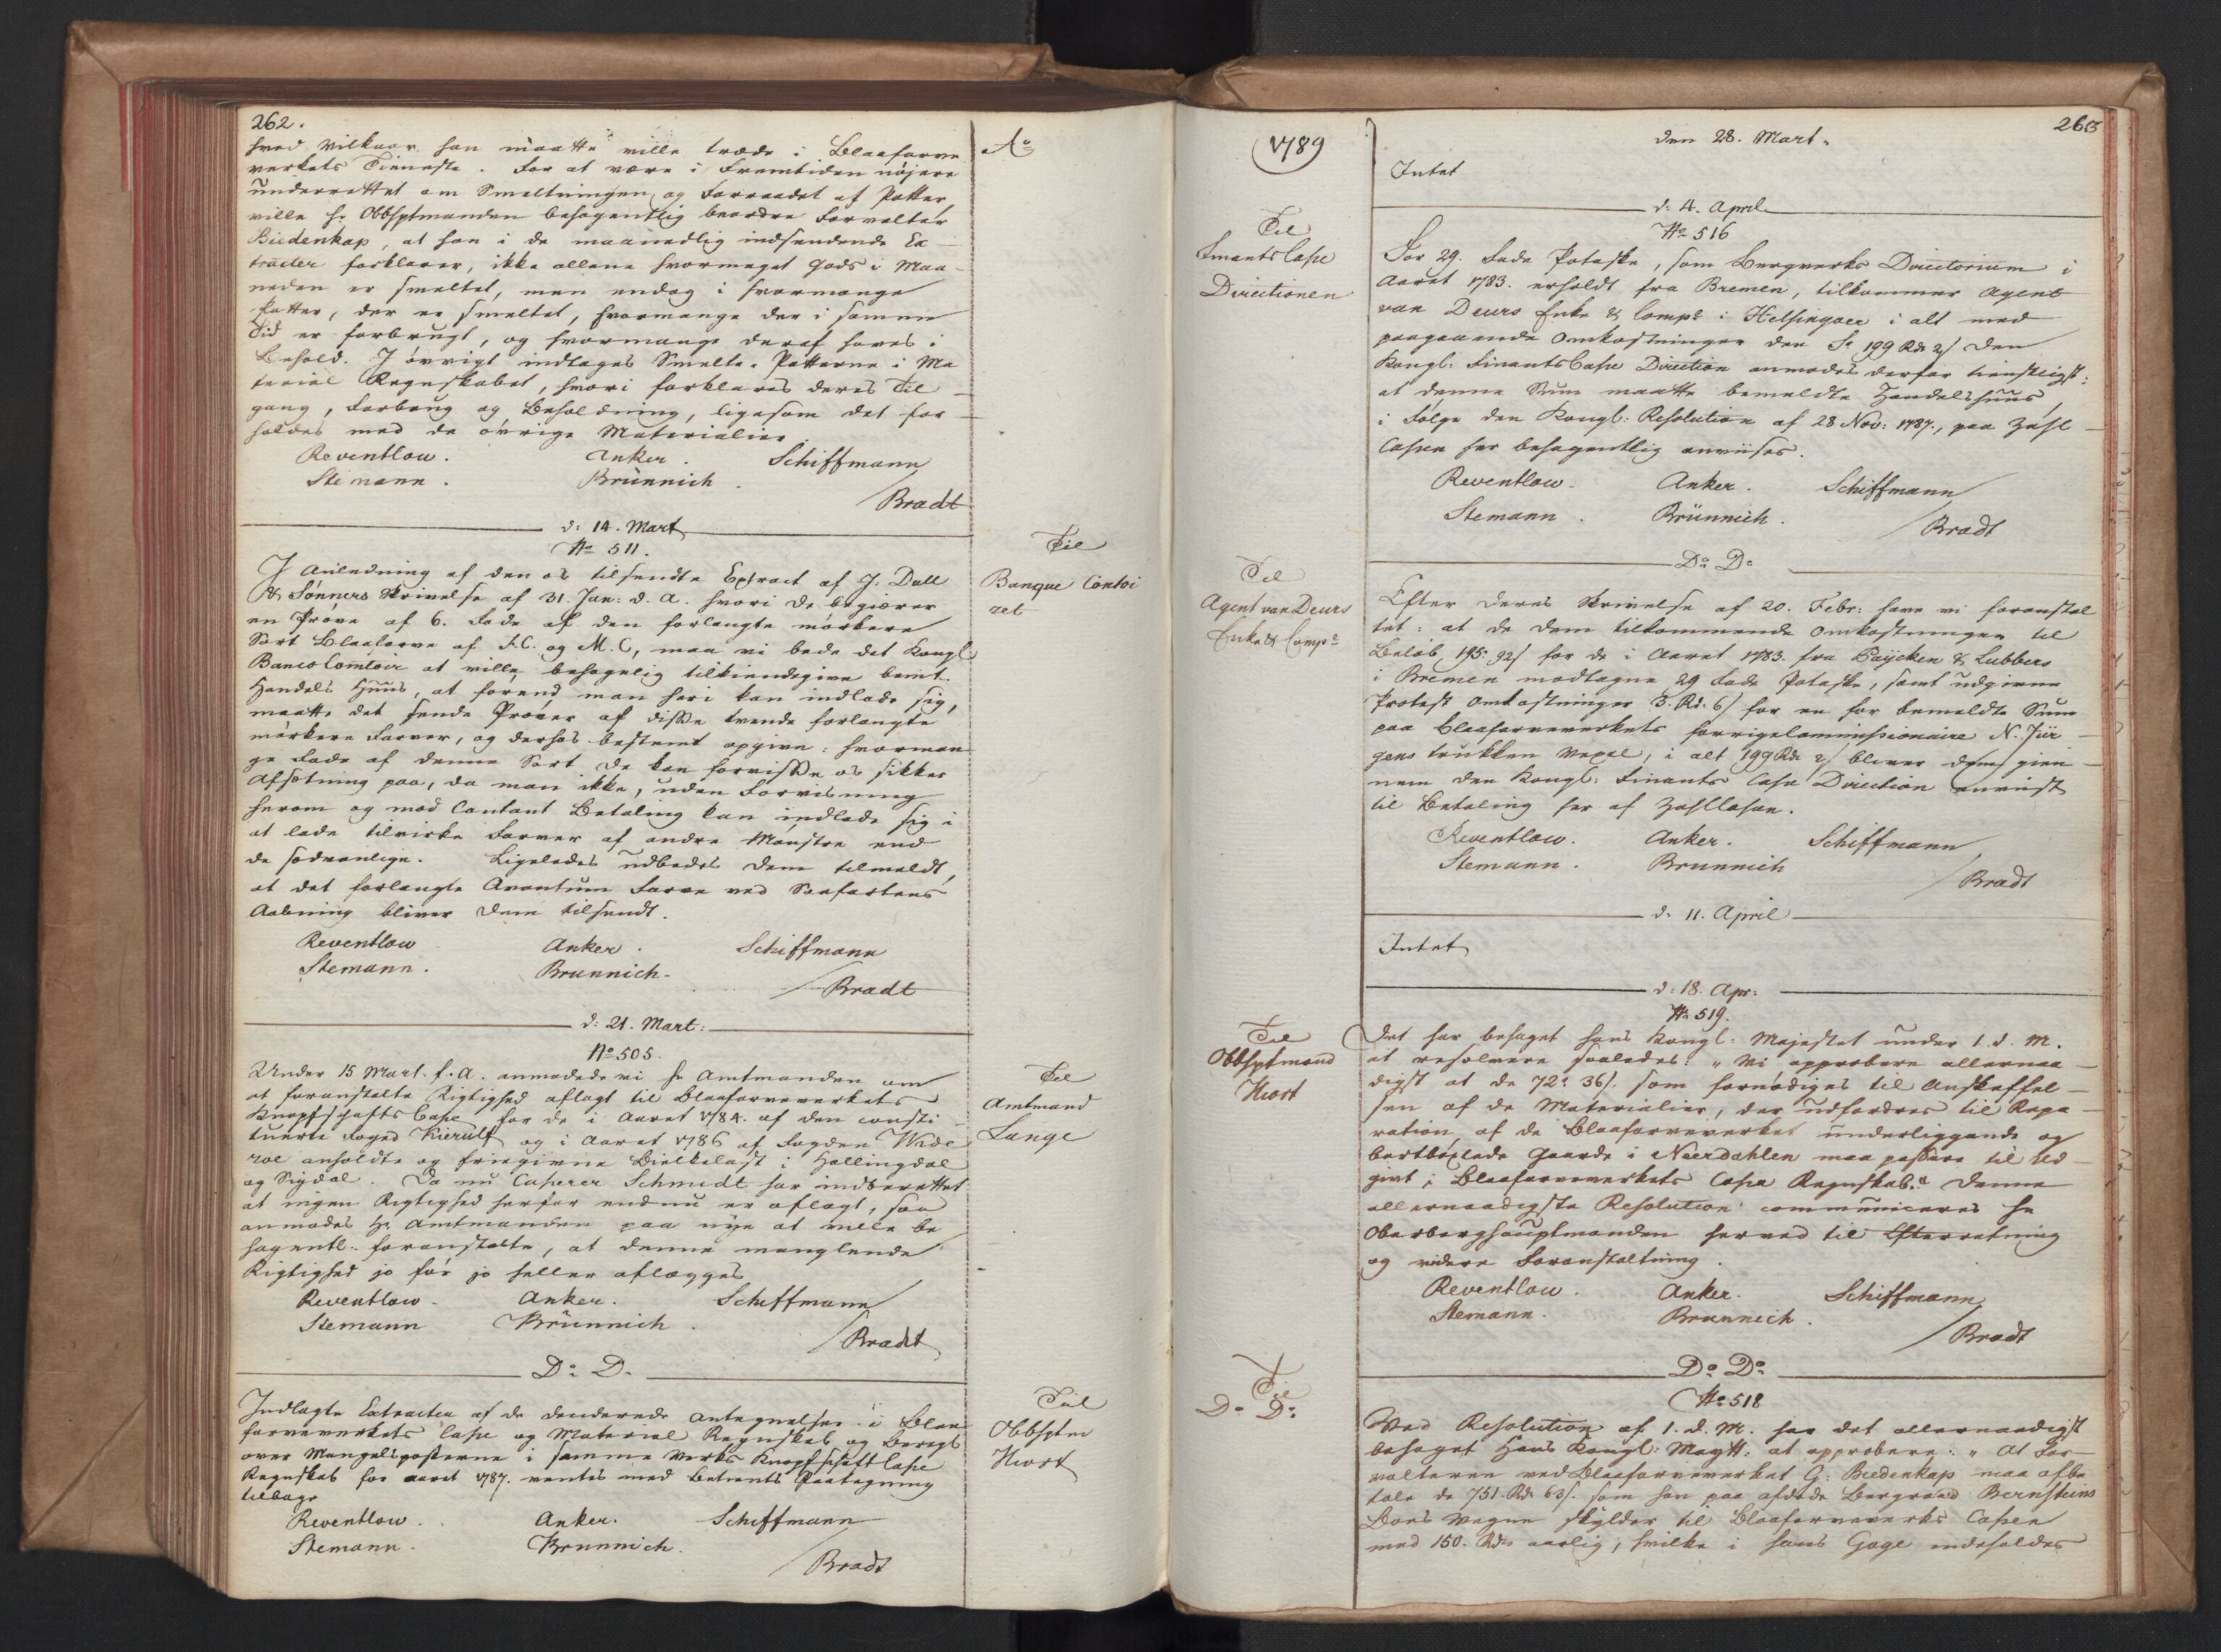 262.
hvad Vilkaar han maatte ville træde i Blaafarve
verkets Tieneste. For at være i Fremtiden nøjere
underrettet om Smeltningen og Forraadet af Potter,
ville Hr Obbhptmanden behagentlig beordre Forvalter
Biedenkap, at han i de maanedlig indsendende Ex
tracter forklarer, ikke allene hvormeget Gods i Maa-
neden er smeltet, men endog i hvormange
Potter, der er smeltet, hvormange der i samme
Tid er forbrugt, og hvormange deraf haves i
Behold. I øvrigt indtages Smelte-Potterne i Ma
terial Regnskabet, hvori forklares deres Til-
gang, Forbrug og Beholdning, ligesom det for-
holdes med de øvrige Materialier
Reventlow. Anker. Schiffmann
Stemann. Brünnich.
Bradt
d: 14. Mart
No 511.
I Anledning af den os tilsendte Extract af J: Dull
& Sønners Skrivelse af 31. Jan: d. A. hvori de begiærer
en Prøve af 6. Fade af den forlangte mörkere
Sort Blaafarve af F.C. og M.C, maa vi bede det Kongl
Banco Comtoir at ville behagelig tilkiendegive bemt.
Handels Huus, at forend man heri kan indlade sig,
maatte det sende Prøver af disse tvende forlangte
mörkere Farver, og derhos bestemt opgive: hvorman
ge Fade af denne Sort de kan forvisse os sikker
Afsætning paa, da man ikke, uden Forvisning
herom og mod Contant Betaling kan indlade sig i
at lade tilvirke Farver af andre Mønstre end
de sædvanlige. Ligeledes udbedes dem tilmeldt,
at det forlangte Avantum Farve ved Søefartens
Aabning bliver dem tilsendt.
Reventlow Anker. Schiffmann
Stemann. Brunnich.
Bradt
d: 21. Mart:
No 505.
Under 15 Mart. f. A. anmodede vi Hr Amtmanden om
at foranstalte Rigtighed aflagt til Blaafarveverkets
Knapschafts Casse for de i Aaret 1784. af den consti-
tuerte Foged Kierulf og i Aaret 1786 af Fogden Wide
roe anholdte og friegivne Bielkelast i Hallingdal
og Sigdal. Da nu Casserer Schmidt har indberettet
at ingen Rigtighed herfor endnu er aflagt, saa
anmodes Hr Amtmanden paa nye at ville be
hagentl. foranstalte, at denne manglende
Rigtighed jo før jo heller aflægges
Reventlow. Anker. Schiffmann
Stemann Brünnich.
Bradt
Do D.
Indlagte Extracter af de deciderede Antegnelser i Blaa
farveverkets Casse og Material Regnskab og
over Mangelsposterne i samme Verks Knapschaft Casse
Regnskab for Aaret 1787. ventes med Paategning
tilbage
Reventlow. Anker. Schiffmann
Stemann. Brunnich.
Bradt
Ao
Til
Banque Contoi
ret
Til
Amtmand
Lange
Til
Obbhptm
Hiort
1789
Til
Finants Casse
Directionen
Til
Agent van Deurs
Enke & Compe
Til
Obbhptmand
Hiort
Til
Do Do
263
den 28. Mart.
Intet
d. 4. April
No 516
For 29. Fade Potaske, som Bergverks Directorium i
Aaret 1783. erholdt fra Bremen, tilkommer Agent
van Deurs Enke & Compe i Helsingøer i alt med
paagaaende Omkostninger den Sm 199 Rd. 2/ den
Kongl: Finants Casse Direction anmodes derfor tienstligst:
at denne Sum maatte bemeldte Handelshuus,
i Følge den Kongl: Resolution af 28 Nov: 1787., paa Zahl
Cassen her behagentlig anvises.
Reventlow. Anker. Schiffmann
Stemann. Brünnich.
Bradt
Do Do
Efter deres Skrivelse af 20. Febr: have vi foranstal
tet: at de dem tilkommende Omkostninger til
Beløb 195: 92/ for de i Aaret 1783. fra Baÿcken & Lubbers
i Bremen modtagne 29 Fade Potaske, samt udgivne
Protest Omkostninger 3. Rd. 6/ for en for bemeldte Sum
paa Blaafarveverkets forrige Commissionaire N. Jür-
gens trukken Vexel, i alt 199 Rd. 2/ bliver dem gien-
nem den Kongl: Finants Casse Direction anviist
til Betaling her af Zahlkassen.
Reventlow. Anker. Schiffmann
Stemann. Brunnich
Bradt
d. 11. April
Intet
d: 18. Apr:
No 519.
Det har behaget Hans Kongl: Majestet under 1. d. M.
at resolvere saaledes: „Vi approbere allernaa-
digst at de 72. 36/. som fornødiges til Anskaffel-
sen af de Materialier, der udfordres til Repa-
ration af de Blaafarveverket underliggende og
bortböxlede Gaarde i Næerdahlen maa passere til Ud-
givt i Blaafarveverkets Casse Regnskab." Denne
allernaadigste Resolution communiceres Hr
Oberberghauptmanden herved til Efterretning
og videre Foranstaltning.
Reventlow. Anker. Schiffmann
Stemann. Brunnich.
Bradt
Do Do
No 518
Ved Resolution af 1. d. M. har det allernaadigst
behaget Hans Kongl: Maytt: at approbere: „At For-
valteren ved Blaafarveverket G: Biedenkap maa afbe
tale de 751. Rd. 63/. som han paa afdøde Bergraad Bernsteins
Boes Vegne skylder til Blaafarveverks Cassen
med 150. Rd. aarlig, hvilke i hans Gage indeholdes